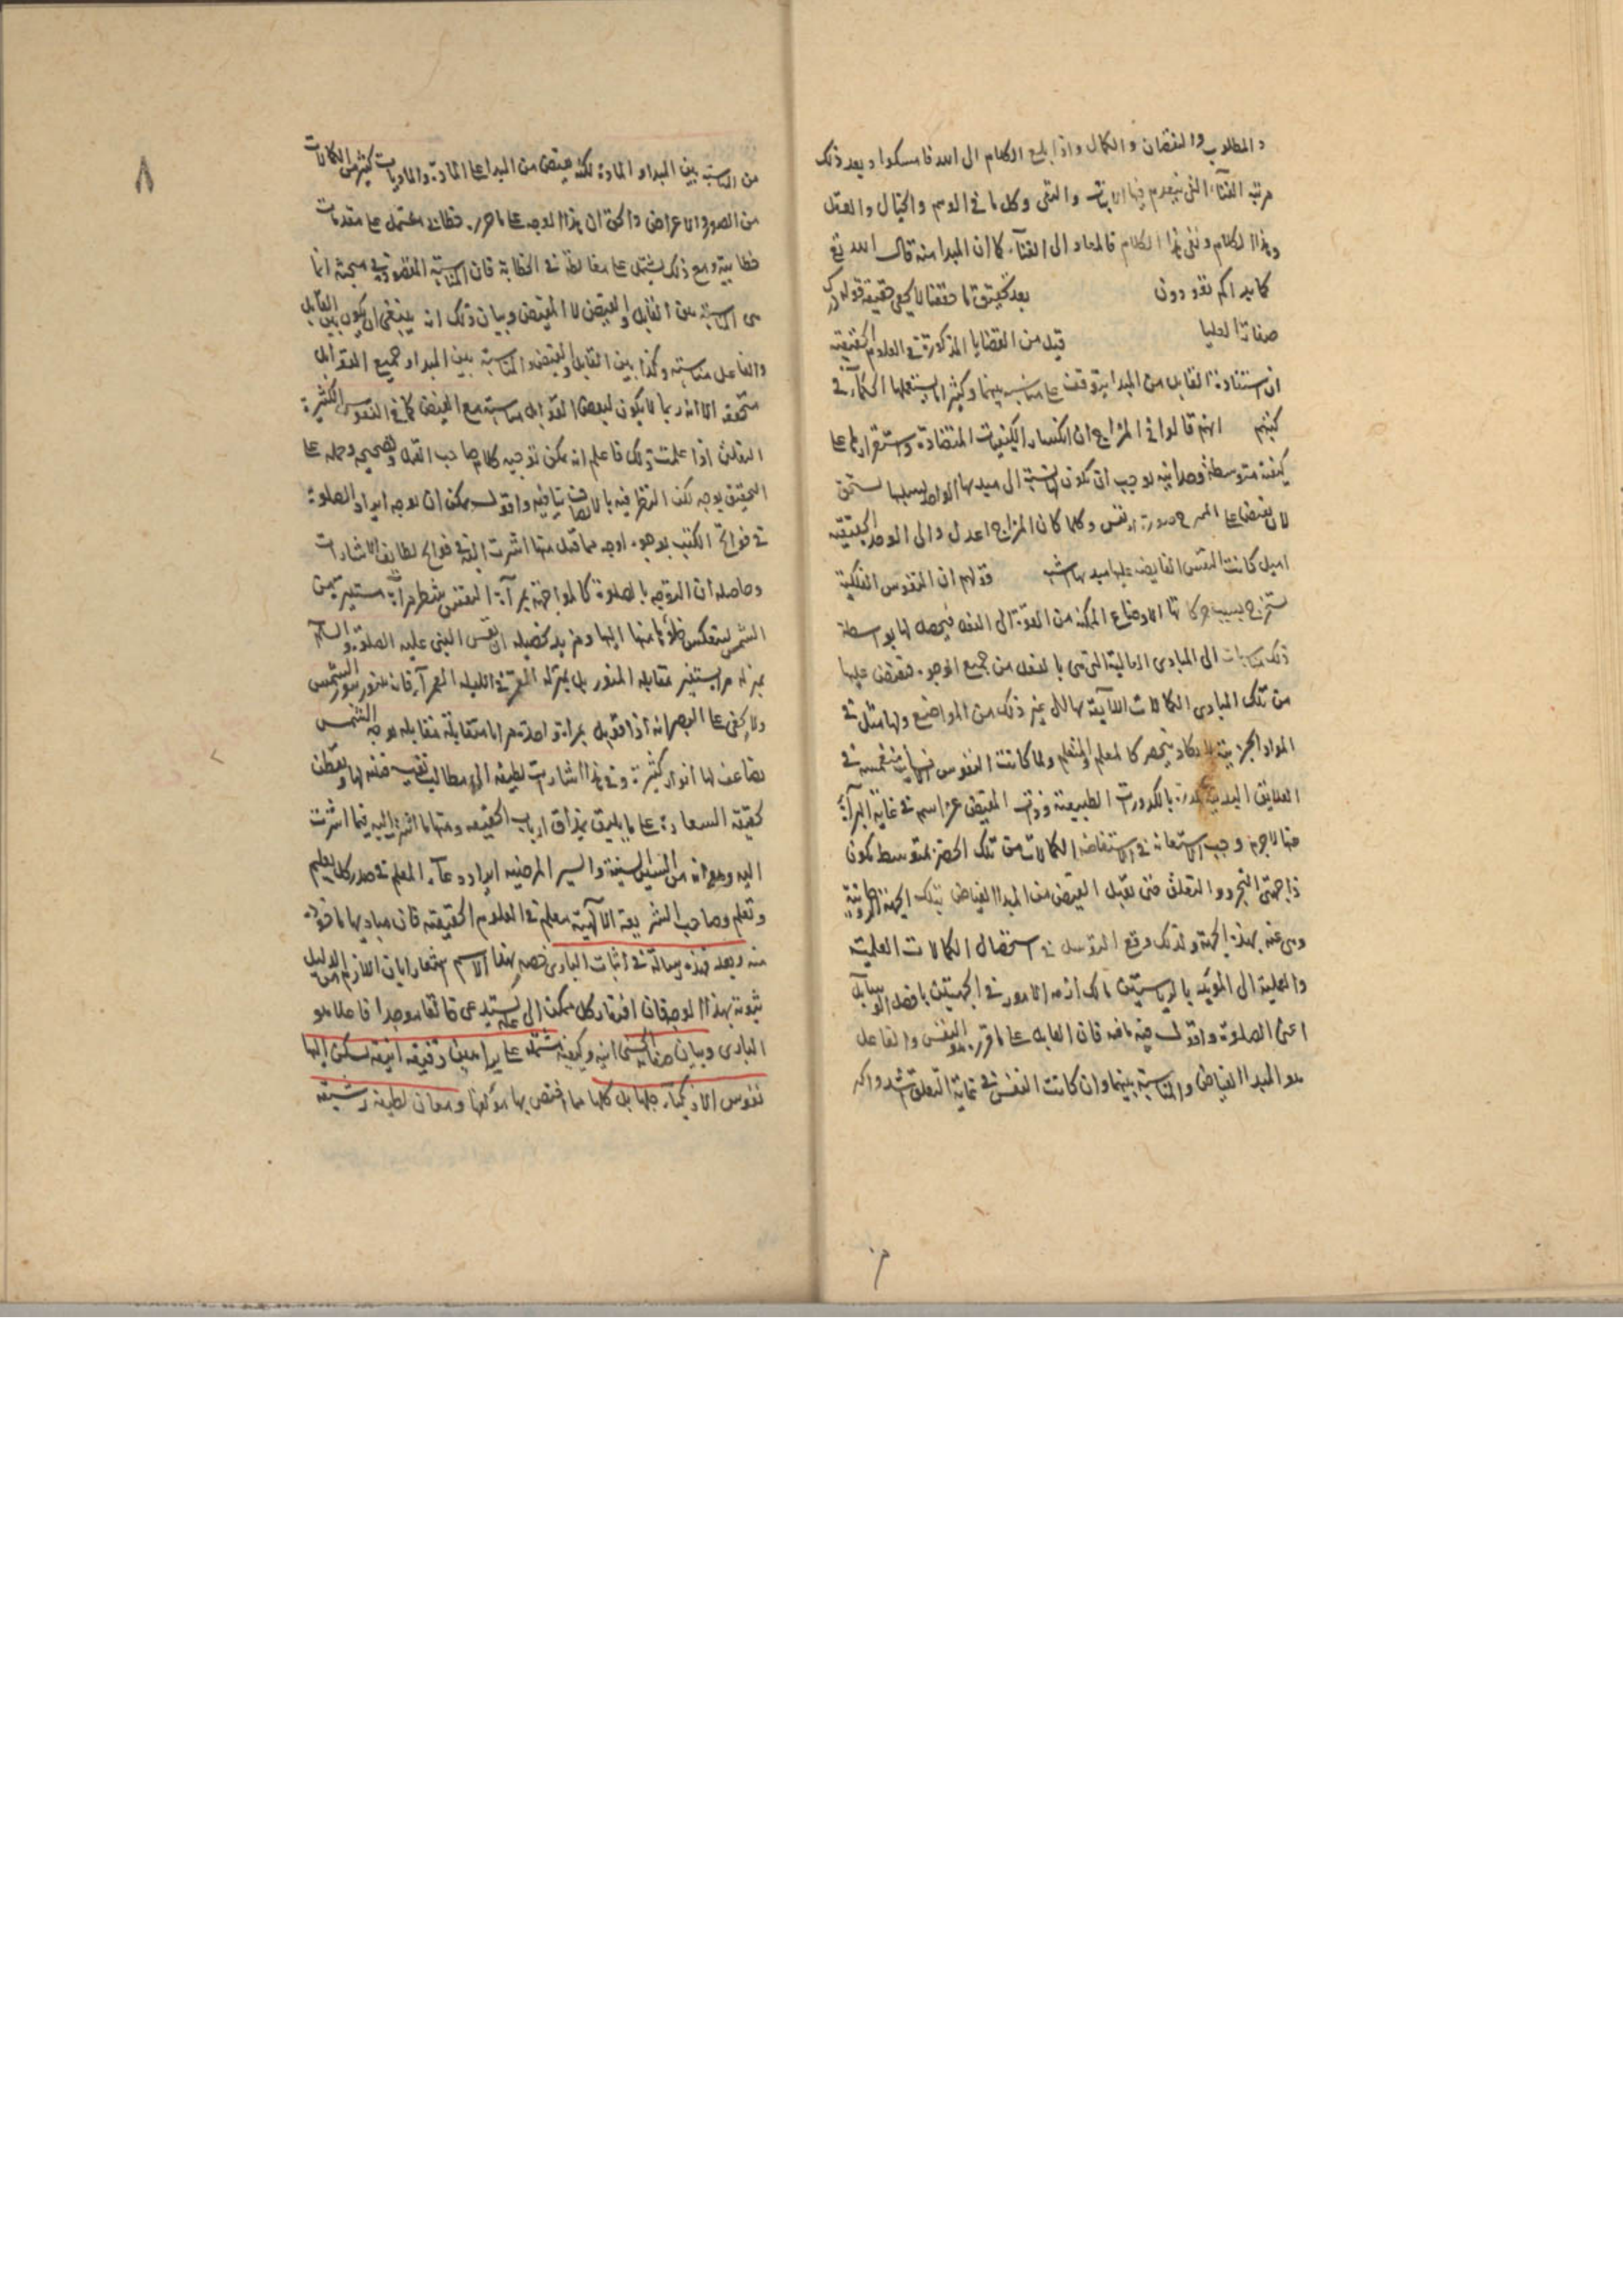 والمطلوب والنقصان والكمال واذا بلغ الكلام الى الله فامسكوا وبعد ذلك
مرتبة الفناء التي ينعدم فيها الاثبات والنفى وكل ما فى الوهم والخيال والعقل
وهذا الكلام ونفى هذا الكلام فالمعاد الى الفناء كما ان المبدا منه قال الله تع
كما بداكم تعودون بعد تحقيق ما حققنا لا يخفى حقيقة قوله
صفاتها العليا قيل من القضايا المذكورة فى العلوم الحقيقية
ان استفادة القابل من المبدا يتوقف على مناسبة بينهما وكثيرا ما يستعملها الحكماء فى
كتبهم انهم قالوا فى المزاج ان انكسار الكيفيات المتضادة واستقرارها على
كيفية متوسطة وحدانية يوجب ان تكون لها نسبة الى مبدئها الواحد بسببها تستحق
لان يفيض على الممتزج صورة او نفس وكلما كان المزاج اعدل والى الوحدة الحقيقية
اميل كانت النفس الفايضة عليها بمبدئها اشبه قولهم ان النفوس الفلكية
تستخرج بسبب حركاتها الاوضاع الممكنة من القوة الى الفعل فيحصل لها بواسطة
ذلك مناسبات الى المبادى العالية التى هى بالفعل من جميع الوجوه فتفيض عليها
من تلك المبادى الكمالات اللائقة بها الى غير ذلك من المواضع ولها مثل فى
المواد الجزئية لا يكاد ينحصر كالمعلم والمتعلم ولما كانت النفوس الانسانية منغمسة فى
العلايق البدنية مكدرة بالكدورات الطبيعية وذات المفيض عز اسمه فى غاية النزاهة
عنها لاجرم وجب الاستعانة فى استفاضة الكمالات من تلك الحضرة بمتوسط يكون
ذا جهتى التجرد والتعلق حتى تقبل الفيض من المبدا الفياض بتلك الجهة الروحانية
وهى عنه بهذه الجهة ولذلك وقع التوسل فى استحصال الكمالات العلمية
والعملية الى المؤيد بالرياستين مالك ازمة الامور فى الجهتين بافضل الوسايل
اعنى الصلوة واقول فيه ما فيه فان القابل على ما قرره هو النفس والفاعل
هو المبدا الفياض والمناسبة بينهما وان كانت النفس فى غاية التعلق اشد واكد
٨
من المناسبة بين المبدا والمادة لكنه يفيض من المبدا على المادة والماديات كثير من الكمالات
من الصور والاعراض والحق ان هذا الوجه على ما حرره خطابى مشتمل على مقدمات
خطابية ومع ذلك يشتمل على مغالطة فى الخطابة فان المناسبة المقصودة فى مبحثه انما
هى المناسبة بين القابل والفيض لا المفيض وبيان ذلك انه ينبغى ان يكون بين القابل
والفاعل مناسبة وكذا بين القابل والفيض والمناسبة بين المبدا وجميع القوابل
متحقق الا انه ربما لا يكون لبعض القوابل مناسبة مع الفيض كما فى النفوس الكثيرة
التعلق اذا علمت ذلك فاعلم انه يمكن توجيه كلام صاحب القيل وتصحيحه وحمله على
التحقيق بوجه لكن النظر فيه بالانصاف ينافيه واقول يمكن ان يوجه ايراد الصلوة
فى فواتح الكتب بوجوه اوجه مما قيل منها ما اشرت اليه فى فواتح لطايف الاشارات
وحاصله ان التوجه بالصلوة كالمواجهة بمرآة النفس شطر مرآة مستنيرة من
الشمس لينعكس ضوء ما منها اليها ومزيد تحصيله ان نفس النبى عليه الصلوة والسلام
بمنزلة مرآة يستنير مقابله المنور بل بمنزلة القمر فى الليلة القمرآء فانه ينور بنور الشمس
ولا يخفى على البصير انه اذا قوبل بمرآة واحدة مرايا متقابلة مقابلة لوجه الشمس
تضاعف لها انوار كثيرة وفى هذا اشارات لطيفة الى مطالب نفيسة فتنبه لها وتفطن
لحقيقة السعادة على ما يليق بمذاق ارباب الحقيقة ومنها ما اشرت اليه فيما اشرت
اليه وهو انه من السنن السنية والسير المرضية ايراد دعاء المعلم فى صدر كل تعليم
وتعلم وصاحب الشريعة الالهية معلم فى العلوم الحقيقية فان مباديها ماخوذة
منه وبعد فهذه رسالة فى اثبات البارى خصه بهذا الاسم اشعارا بان اللازم من الدليل
ثبوته بهذا الوجه فان افتقار كل ممكن الى علة يستدعى خالقا موجدا فاعلا هو
البارى وبيان صفاته الحسنى انيه وكيفية مشتملة على براهين دقيقة انيقة تسكن اليها
نفوس الاذكياء جلها بل كلها مما اختص بها مؤلفها ومعان لطيفة رشيقة